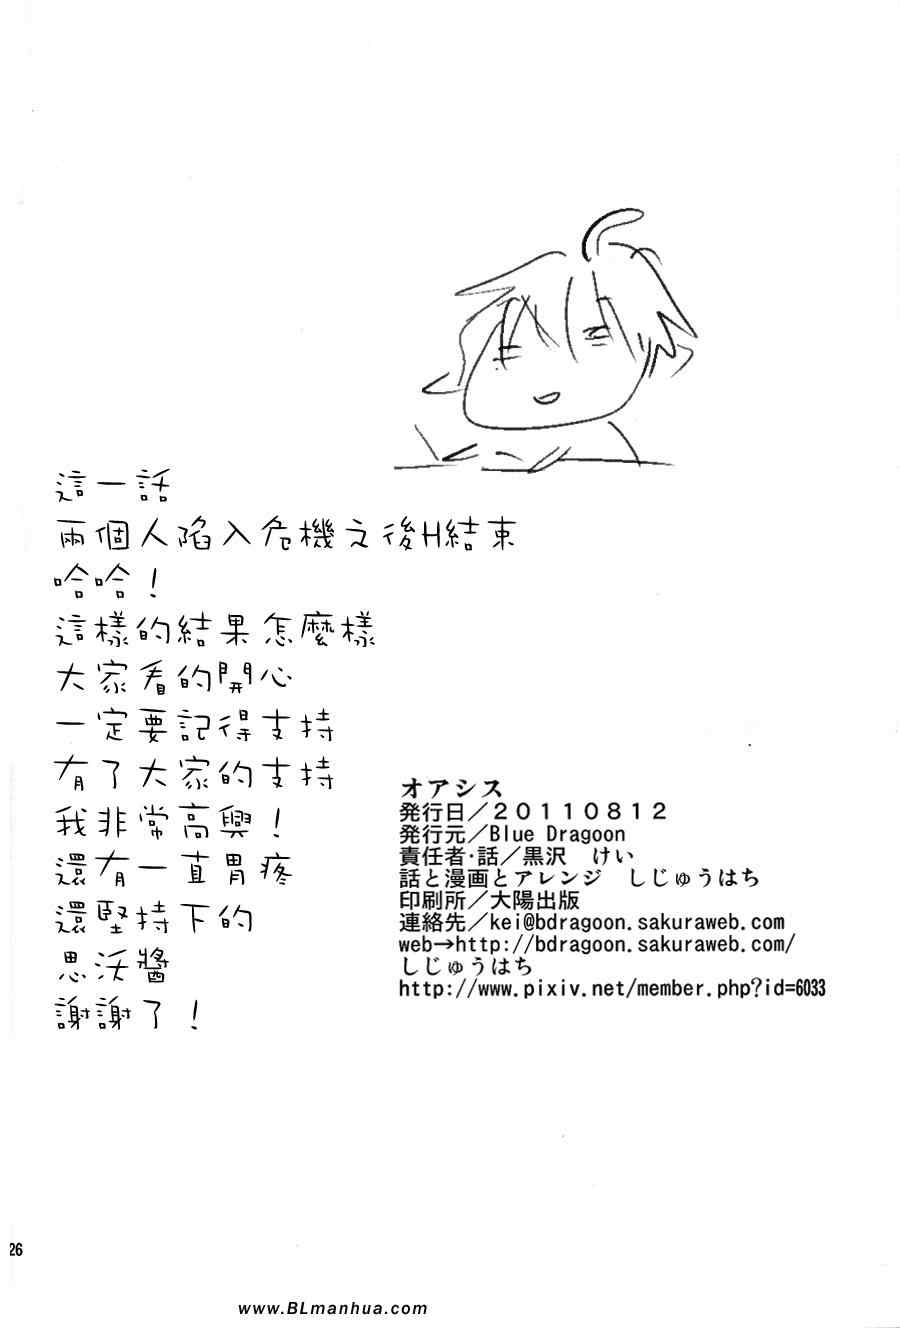 這一話
兩個人陷入危機之後H結束
哈哈！
這樣的結果怎麼樣
大家看的開心
一定要記得支持
有了大家的支持
我非常高興！
還有一直胃疼
還堅持下的
思沃醬
謝謝了！
オアシス
発行日／２０１１０８１２
発行元／Blue Dragoon
責任者・話／黒沢　けい
話と漫画とアレンジ　しじゅうはち
印刷所／大陽出版
連絡先／kei@bdragoon.sakuraweb.com
web→http://bdragoon.sakuraweb.com/
しじゅうはち
http://www.pixiv.net/member.php?id=6033
26
www.BLmanhua.com